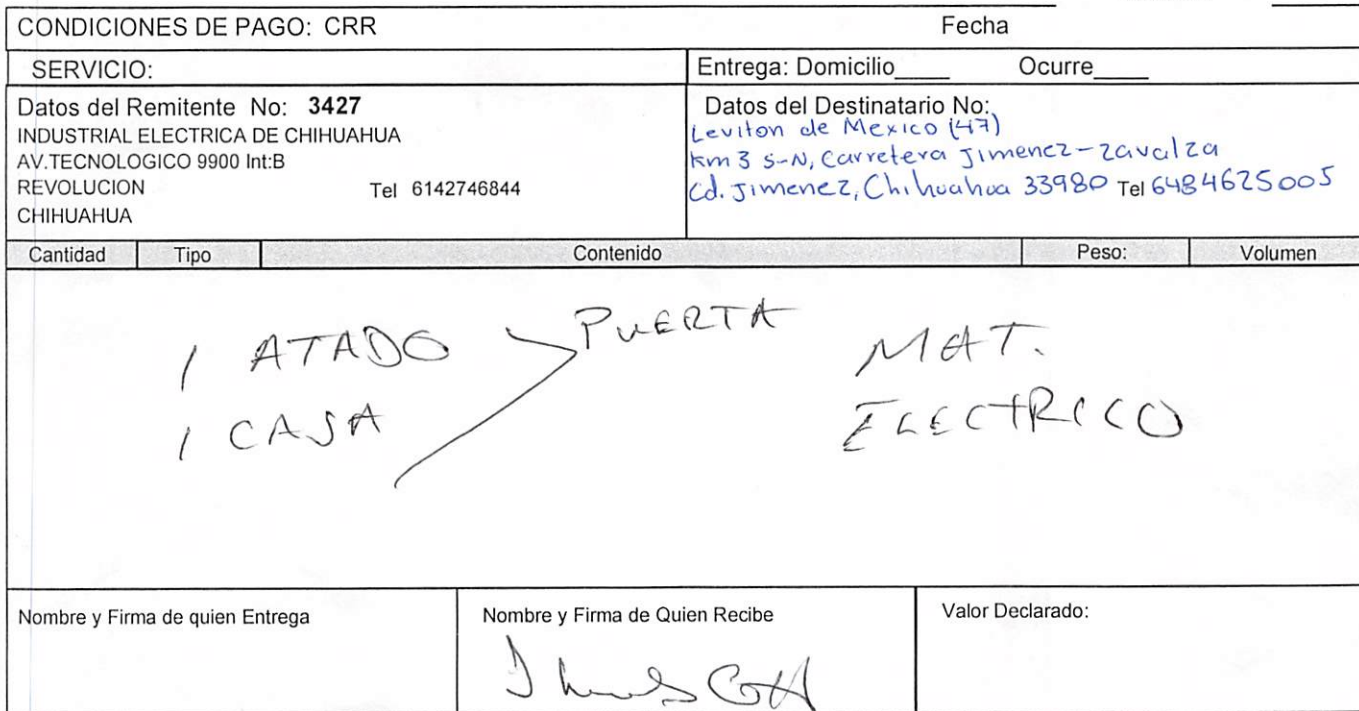 CONDICIONES DE PAGO: CRR Fecha
SERVICIO: Entrega: Domicilio____ Ocurre____
Datos del Remitente No: 3427
INDUSTRIAL ELECTRICA DE CHIHUAHUA
AV.TECNOLOGICO 9900 Int:B
REVOLUCION Tel 6142746844
CHIHUAHUA
Datos del Destinatario No:
Leviton de Mexico (47)
Km 3 S-N, Carretera Jimenez-Zavalza
Cd. Jimenez, Chihuahua 33980 Tel 6484625005
Cantidad Tipo Contenido Peso: Volumen
1 ATADO PUERTA MAT.
1 CAJA ELECTRICO
Nombre y Firma de quien Entrega
Nombre y Firma de Quien Recibe
Valor Declarado: